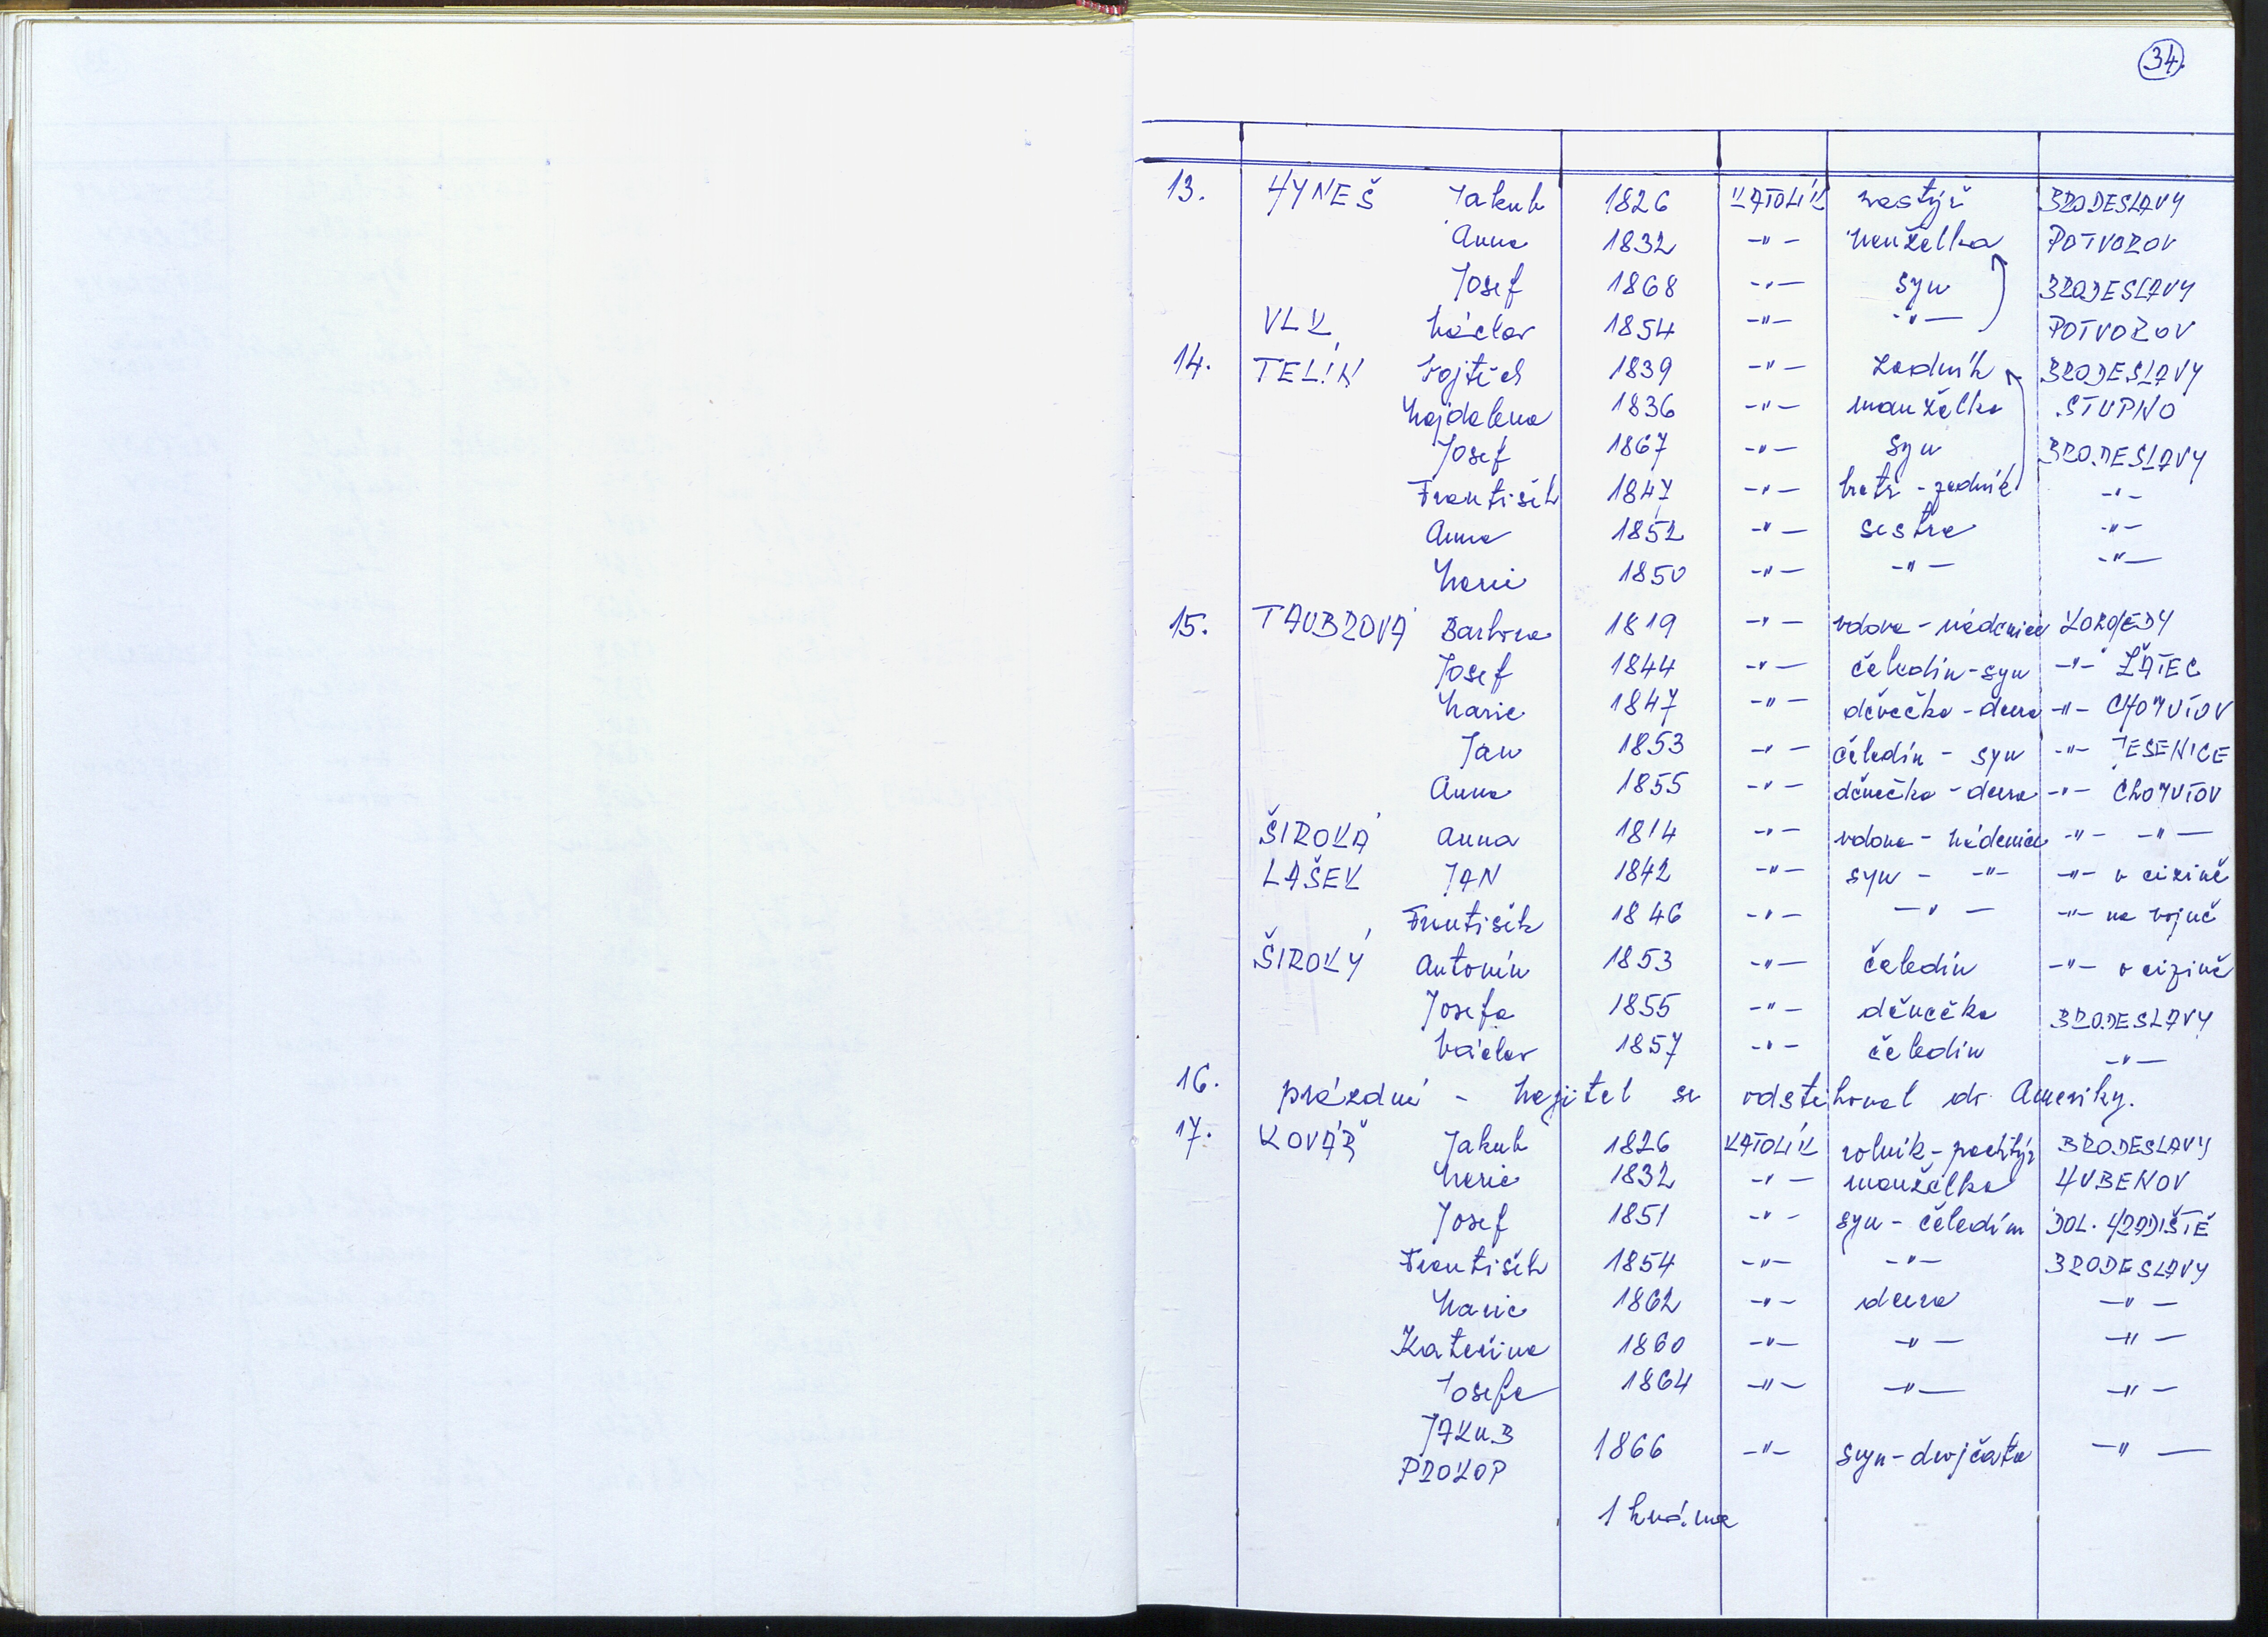 34.
13. HYNEŠ Jakub 1826 KATOLÍK pastýř BRODESLAVY
Anna 1832 -"- manželka POTVOROV
Josef 1868 -"- syn BRODESLAVY
VLK Václav 1854 -"- -"- POTVOROV
14. TELÍN Vojtěch 1839 -"- zedník BRODESLAVY
Majdalena 1836 -"- manželka STUPNO
Josef 1867 -"- syn BRODESLAVY
František 1847 -"- bratr - zedník -"-
Anna 1852 -"- sestra -"-
Marie 1850 -"- -"- -"-
15. TAUBROVÁ Barbora 1819 -"- vdova - nádenice
Josef 1844 -"- čeledín - syn -"- ŽATEC
Marie 1847 -"- děvečka - dcera -"- CHOMUTOV
Jan 1853 -"- čeledín - syn -"- JESENICE
Anna 1855 -"- děvečka - dcera -"- CHOMUTOV
ŠIROKÁ Anna 1814 -"- vdova - nádenice -"- -"-
LAŠEK JAN 1842 -"- syn - -"- -"- v cizině
František 1846 -"- -"- -"- na vojně
ŠIROKÝ Antonín 1853 -"- čeledín -"- v cizině
Josefa 1855 -"- děvečka BRODESLAVY
Václav 1857 -"- čeledín -"-
16. prázdné - majitel se odstěhoval do Ameriky.
17. KOVÁŘ Jakub 1826 KATOLÍK rolník - pachtýř BRODESLAVY
Marie 1832 -"- manželka HUBENOV
Josef 1851 -"- syn - čeledín DOL. HRADIŠTĚ
František 1854 -"- -"- BRODESLAVY
Marie 1862 -"- dcera -"-
Kateřina 1860 -"- -"- -"-
Josefa 1864 -"- -"- -"-
JAKUB
PROKOP 1866 -"- syn - dvojčata -"-
1 kráva